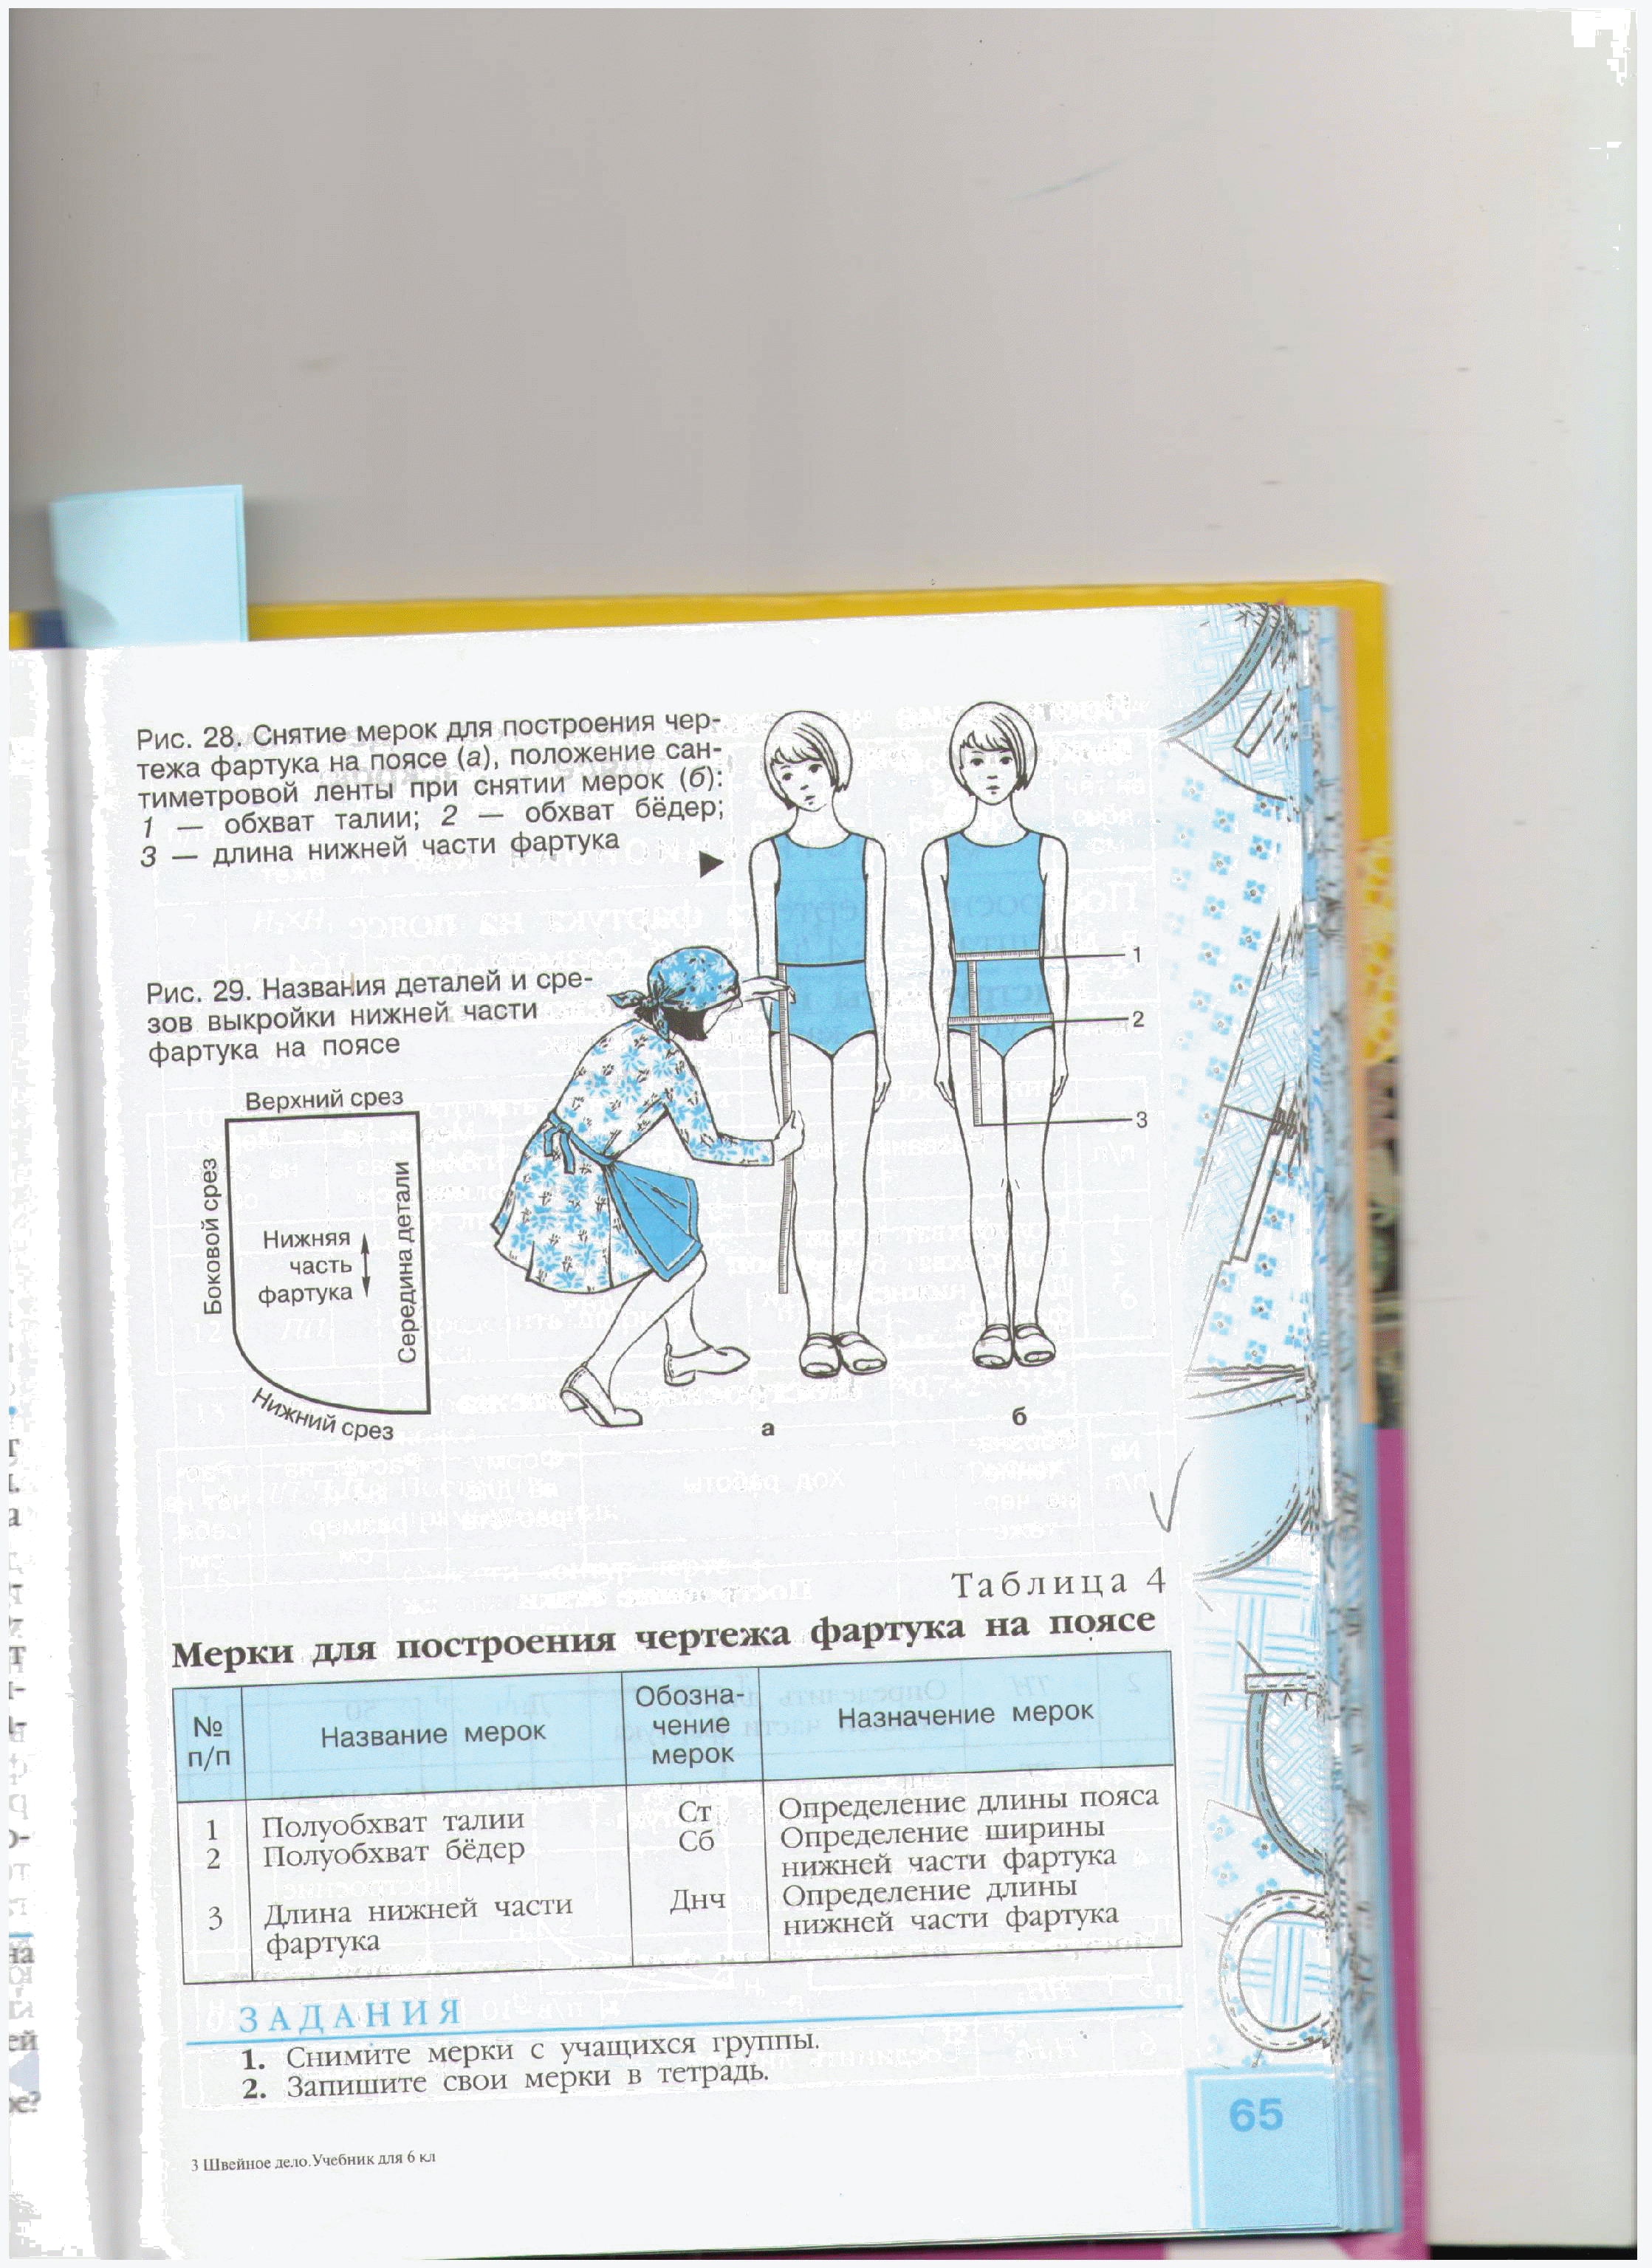 Рис. 28. Снятие мерок для построения чер-
тежа фартука на поясе (а), положение сан-
тиметровой ленты при снятии мерок (б):
1 — обхват талии; 2 — обхват бёдер;
3 — длина нижней части фартука
Рис. 29. Названия деталей и сре-
зов выкройки нижней части
фартука на поясе
Верхний срез
Боковой срез
Нижняя
часть
фартука
Середина детали
Нижний срез
1
2
3
а
б
Таблица 4
Мерки для построения чертежа фартука на поясе
№
п/п
Название мерок
Обозна-
чение
мерок
Назначение мерок
1 Полуобхват талии Ст Определение длины пояса
2 Полуобхват бёдер Сб Определение ширины
нижней части фартука
3 Длина нижней части Днч Определение длины
фартука нижней части фартука
ЗАДАНИЯ
1. Снимите мерки с учащихся группы.
2. Запишите свои мерки в тетрадь.
65
3 Швейное дело.Учебник для 6 кл